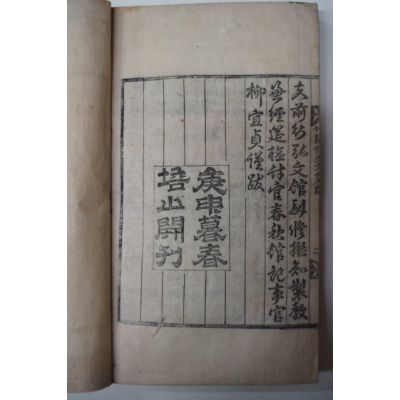 前行弘文館副修撰知製敎
兼經筵檢討官春秋館記事官
柳宜貞謹跋
庚申暮春
培山開刊